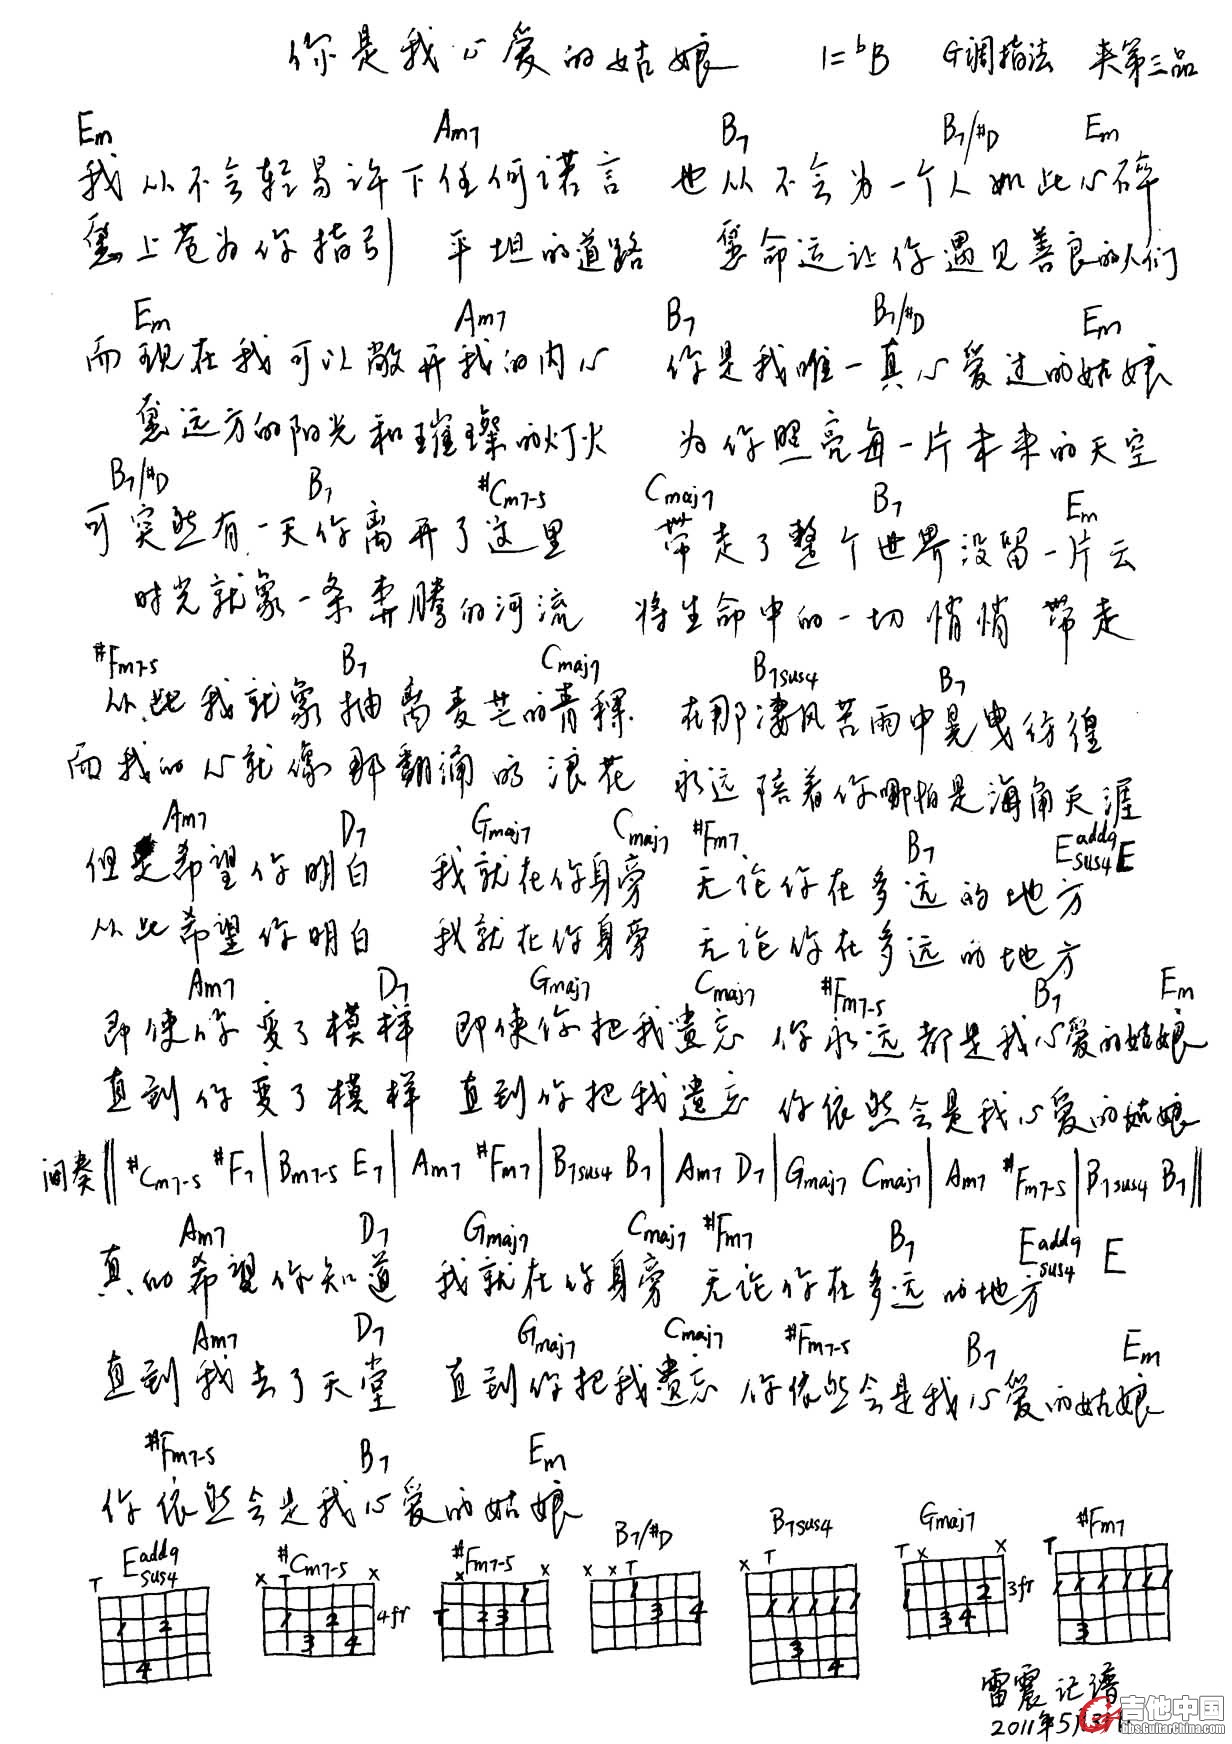 你是我心爱的姑娘 1=ᵇB G调指法 夹第三品
Em Am7 B7 B7/#D Em
我从不会轻易许下任何诺言 也从不会为一个人如此心碎
愿上苍为你指引 平坦的道路 愿命运让你遇见善良的人们
Em Am7 B7 B7/#D Em
而现在我可以敞开我的内心 你是我唯一真心爱过的姑娘
愿远方的阳光和璀璨的灯火 为你照亮每一片未来的天空
B7/#D B7 #Cm7-5 Cmaj7 B7 Em
可突然有一天你离开了这里 带走了整个世界没留一片云
时光就象一条奔腾的河流 将生命中的一切悄悄带走
#Fm7-5 B7 Cmaj7 B7sus4 B7
从此我就象抽离麦芒的青稞 在那凄风苦雨中晃曳彷徨
而我的心就像那翻涌的浪花 永远陪着你哪怕是海角天涯
Am7 D7 Gmaj7 Cmaj7 #Fm7 B7 Eadd9sus4 E
但是希望你明白 我就在你身旁 无论你在多远的地方
从此希望你明白 我就在你身旁 无论你在多远的地方
Am7 D7 Gmaj7 Cmaj7 #Fm7-5 B7 Em
即使你变了模样 即使你把我遗忘 你永远都是我心爱的姑娘
直到你变了模样 直到你把我遗忘 你依然会是我心爱的姑娘
间奏 ‖ #Cm7-5 #F7 | Bm7-5 E7 | Am7 #Fm7 | B7sus4 B7 | Am7 D7 | Gmaj7 Cmaj7 | Am7 #Fm7-5 | B7sus4 B7 ‖
Am7 D7 Gmaj7 Cmaj7 #Fm7 B7 Eadd9sus4 E
真的希望你知道 我就在你身旁 无论你在多远的地方
Am7 D7 Gmaj7 Cmaj7 #Fm7-5 B7 Em
直到我去了天堂 直到你把我遗忘 你依然会是我心爱的姑娘
#Fm7-5 B7 Em
你依然会是我心爱的姑娘
Eadd9sus4 #Cm7-5 #Fm7-5 B7/#D B7sus4 Gmaj7 #Fm7
T x T x x x x x T x T T x x T
1 2 4
1 2 3 4 4fr
T 2 3 1
1 3 4
1 1 1 1 1 3 4
1 2 3 4 3fr
1 1 1 1 1 1 3
雷震记谱
2011年5月
吉他中国
bbs.GuitarChina.com